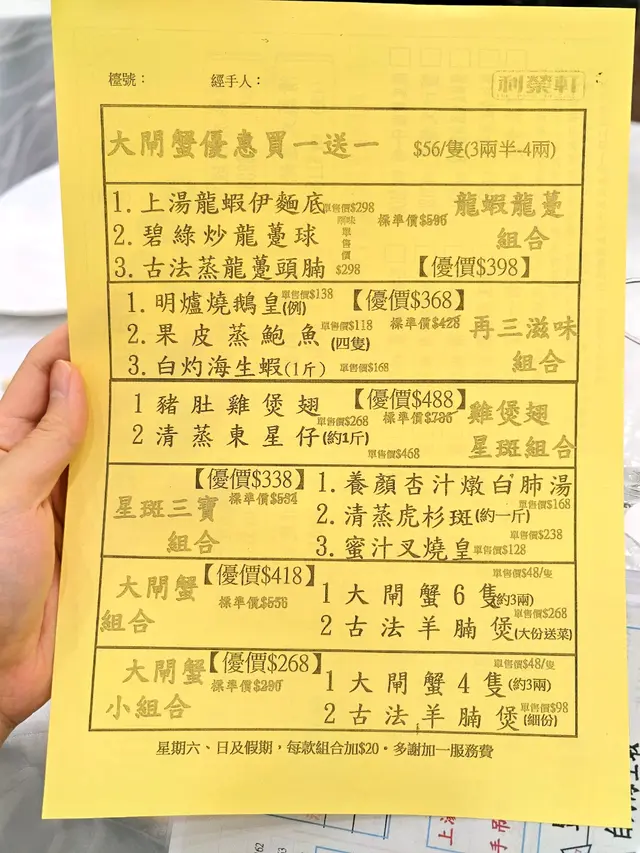 檯號： 經手人： 利榮軒
大閘蟹優惠買一送一 $56/隻(3兩半-4兩)
1. 上湯龍蝦伊麵底 單售價$298 標準價$596 龍蝦龍躉
2. 碧綠炒龍躉球 單售價 組合
3. 古法蒸龍躉頭腩 $298 【優價$398】
1. 明爐燒鵝皇(例) 單售價$138 【優價$368】
2. 果皮蒸鮑魚(四隻) 單售價$118 標準價$428 再三滋味
3. 白灼海生蝦(1斤) 單售價$168 組合
1 豬肚雞煲翅 單售價$268 【優價$488】 標準價$736 雞煲翅
2 清蒸東星仔(約1斤) 單售價$468 星斑組合
【優價$338】 1. 養顏杏汁燉白肺湯 單售價$168
星斑三寶 標準價$534 2. 清蒸虎杉斑(約一斤) 單售價$238
組合 3. 蜜汁叉燒皇 單售價$128
大閘蟹 【優價$418】 1 大閘蟹6隻(約3兩) 單售價$48/隻
組合 標準價$556 2 古法羊腩煲(大份送菜) 單售價$268
大閘蟹 【優價$268】 1 大閘蟹4隻(約3兩) 單售價$48/隻
小組合 標準價$290 2 古法羊腩煲(細份) 單售價$98
星期六、日及假期，每款組合加$20・多謝加一服務費